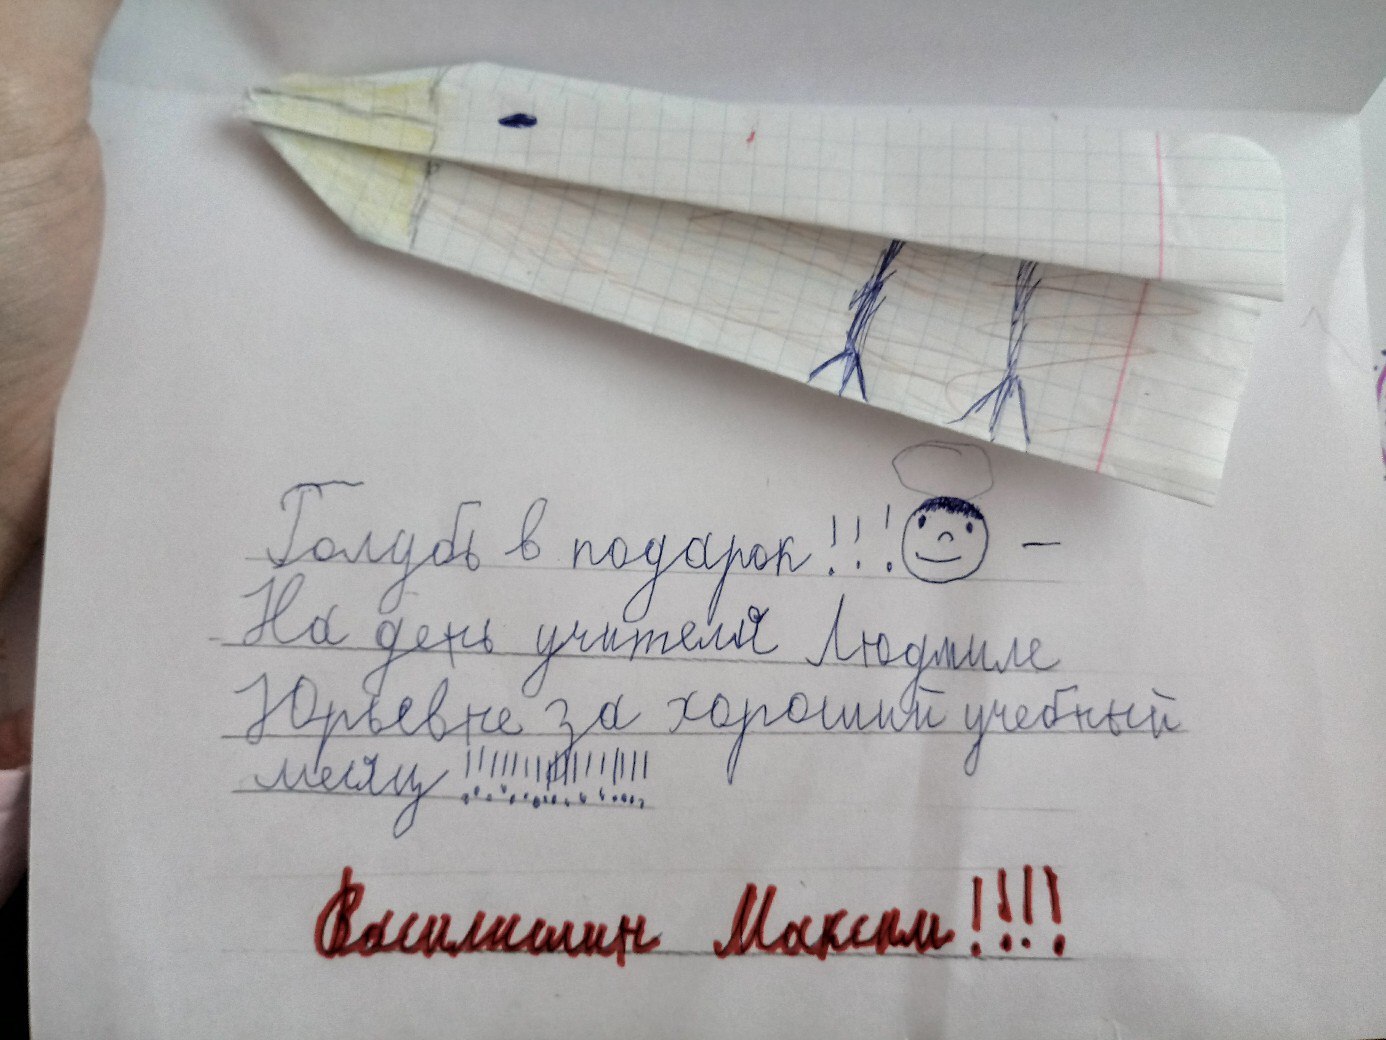 Голубь в подарок!!! –
На день учителя Людмиле
Юрьевне за хороший учебный
месяц !!!!!!!!!!!!!!!!!
Василишин Максим!!!!